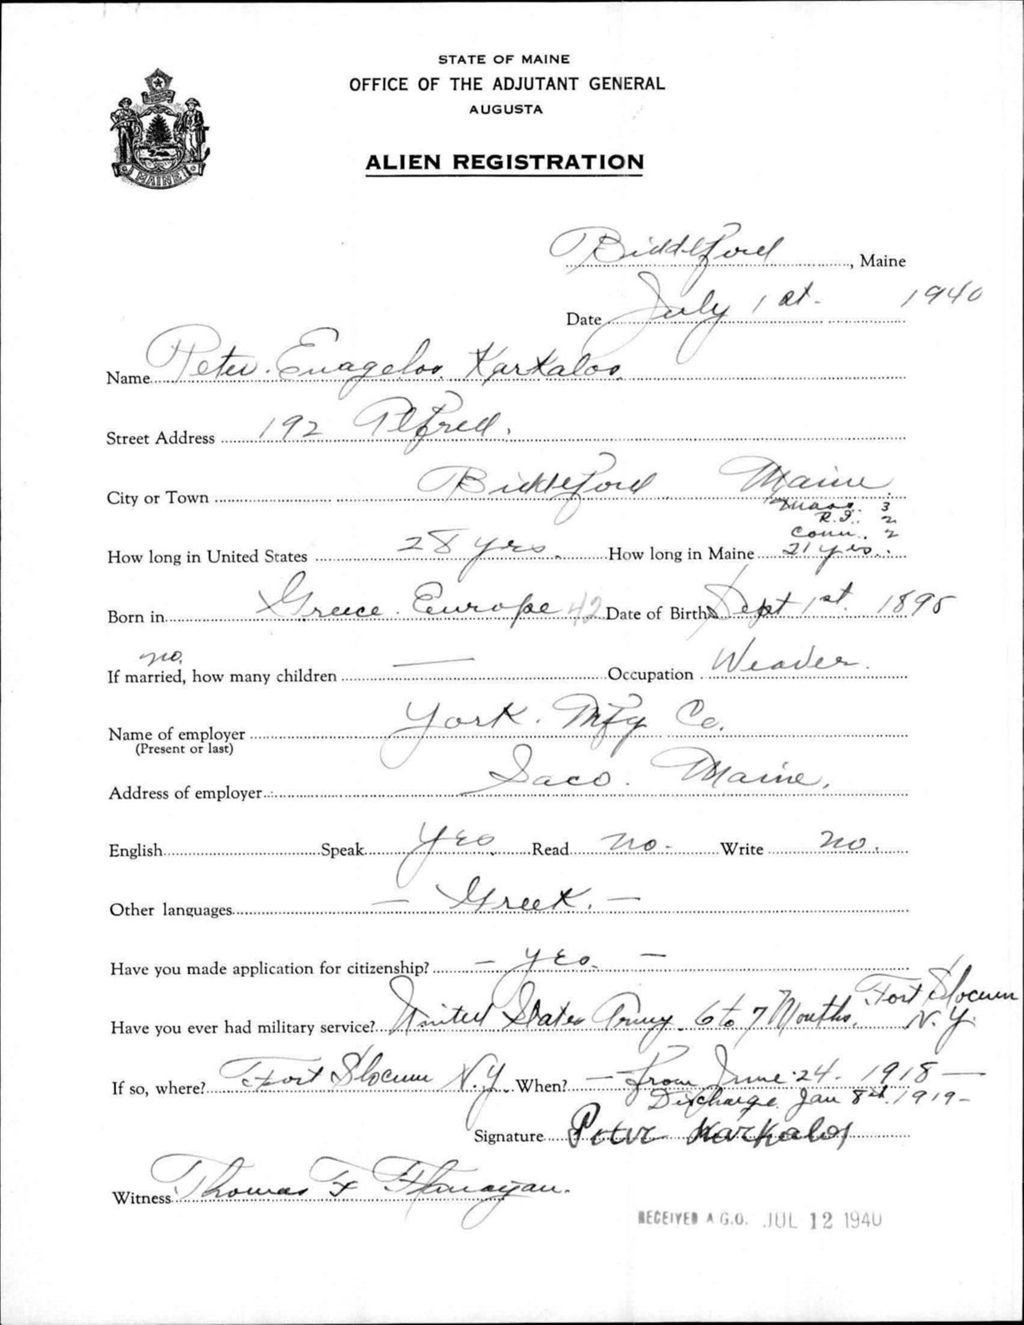 STATE OF MAINE
OFFICE OF THE ADJUTANT GENERAL
AUGUSTA
ALIEN REGISTRATION
MAINE
Biddeford, Maine
Date July 1st. 1940
Name Peter. Evagelos Karkalos
Street Address 192 Alfred.
City or Town Biddeford Maine.
Mass. 3
R.I. 2
Conn. 2
How long in United States 28 yrs. How long in Maine 21 yrs.
Born in Greece. Europe 42 Date of Birth Sept 1st. 1898
no.
If married, how many children — Occupation Weaver.
Name of employer York. Mfg Co.
(Present or last)
Address of employer Saco. Maine.
English Speak Yes Read no. Write no.
Other languages — Greek. —
Have you made application for citizenship? — yes. —
Have you ever had military service? United States Army 6 to 7 Months. Fort Slocum
N.Y.
If so, where? Fort Slocum N.Y. When? — from June 24. 1918 —
Discharge Jan 8th. 1919 -
Signature Peter Karkalos
Witness Thomas F Flanagan.
RECEIVED A.G.O. JUL 12 1940